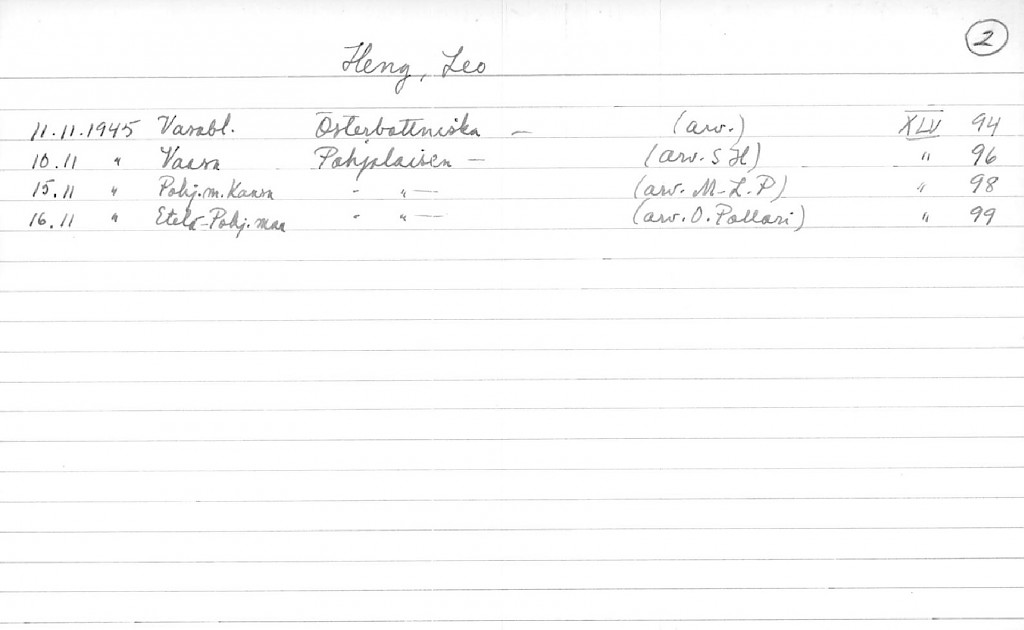 2
Heng, Leo
11.11.1945 Vasabl. Österbottniska — (arv.) XLV 94
10.11 " Vaasa Pohjalaisen — (arv. S H) " 96
15.11 " Pohj.m.Kansa - " — (arv. M-L.P) " 98
16.11 " Etelä-Pohj.maa - " — (arv. O. Pollari) " 99